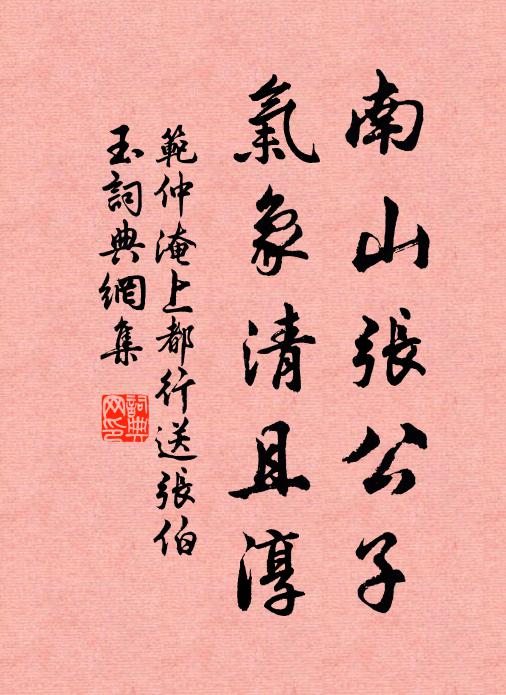 南山張公子
氣象清且淳
範仲淹上都行送張伯
玉詞典網集
詞典網印